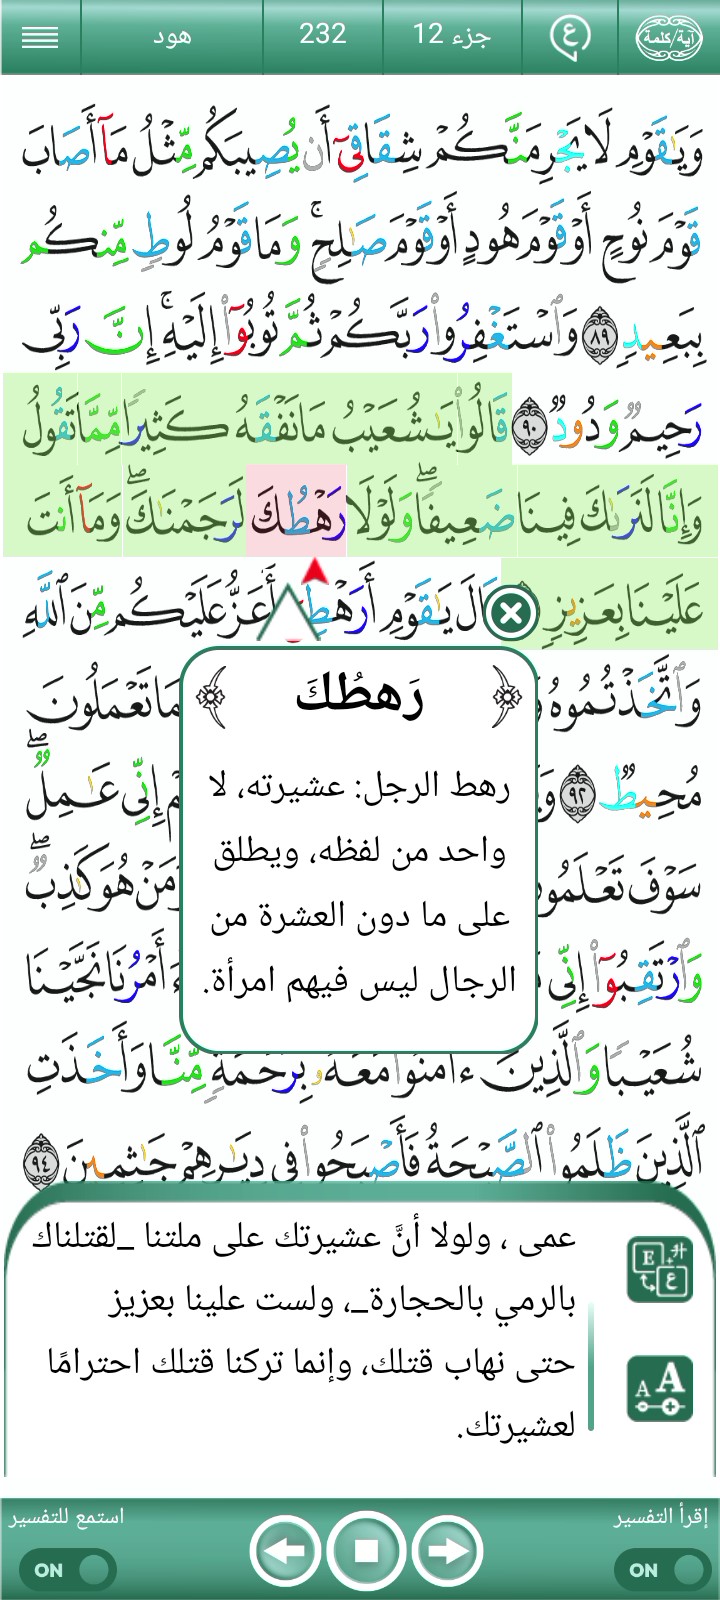 آية/كلمة ع جزء 12 232 هود
وَيَٰقَوْمِ لَا يَجْرِمَنَّكُمْ شِقَاقِىٓ أَن يُصِيبَكُم مِّثْلُ مَآ أَصَابَ
قَوْمَ نُوحٍ أَوْ قَوْمَ هُودٍ أَوْ قَوْمَ صَٰلِحٍۚ وَمَا قَوْمُ لُوطٍ مِّنكُم
بِبَعِيدٍ ٨٩ وَٱسْتَغْفِرُوا۟ رَبَّكُمْ ثُمَّ تُوبُوٓا۟ إِلَيْهِۚ إِنَّ رَبِّى
رَحِيمٌ وَدُودٌ ٩٠ قَالُوا۟ يَٰشُعَيْبُ مَا نَفْقَهُ كَثِيرًا مِّمَّا تَقُولُ
وَإِنَّا لَنَرَىٰكَ فِينَا ضَعِيفًاۖ وَلَوْلَا رَهْطُكَ لَرَجَمْنَٰكَۖ وَمَآ أَنتَ
عَلَيْنَا بِعَزِيزٍ قَالَ يَٰقَوْمِ أَرَهْطِىٓ أَعَزُّ عَلَيْكُم مِّنَ ٱللَّهِ
وَٱتَّخَذْتُمُوهُ مَا تَعْمَلُونَ
مُحِيطٌ ٩٢ إِنِّى عَٰمِلٌۖ
سَوْفَ تَعْلَمُونَ وَمَنْ هُوَ كَٰذِبٌۖ
وَٱرْتَقِبُوٓا۟ إِنِّى أَمْرُنَا نَجَّيْنَا
شُعَيْبًا وَٱلَّذِينَ ءَامَنُوا۟ مَعَهُۥ بِرَحْمَةٍ مِّنَّا وَأَخَذَتِ
ٱلَّذِينَ ظَلَمُوا۟ ٱلصَّيْحَةُ فَأَصْبَحُوا۟ فِى دِيَٰرِهِمْ جَٰثِمِينَ ٩٤
رَهطُكَ
رهط الرجل: عشيرته، لا
واحد من لفظه، ويطلق
على ما دون العشرة من
الرجال ليس فيهم امرأة.
عمى ، ولولا أنَّ عشيرتك على ملتنا _لقتلناك
بالرمي بالحجارة_، ولست علينا بعزيز
حتى نهاب قتلك، وإنما تركنا قتلك احترامًا
لعشيرتك.
إقرأ التفسير استمع للتفسير
ON ON